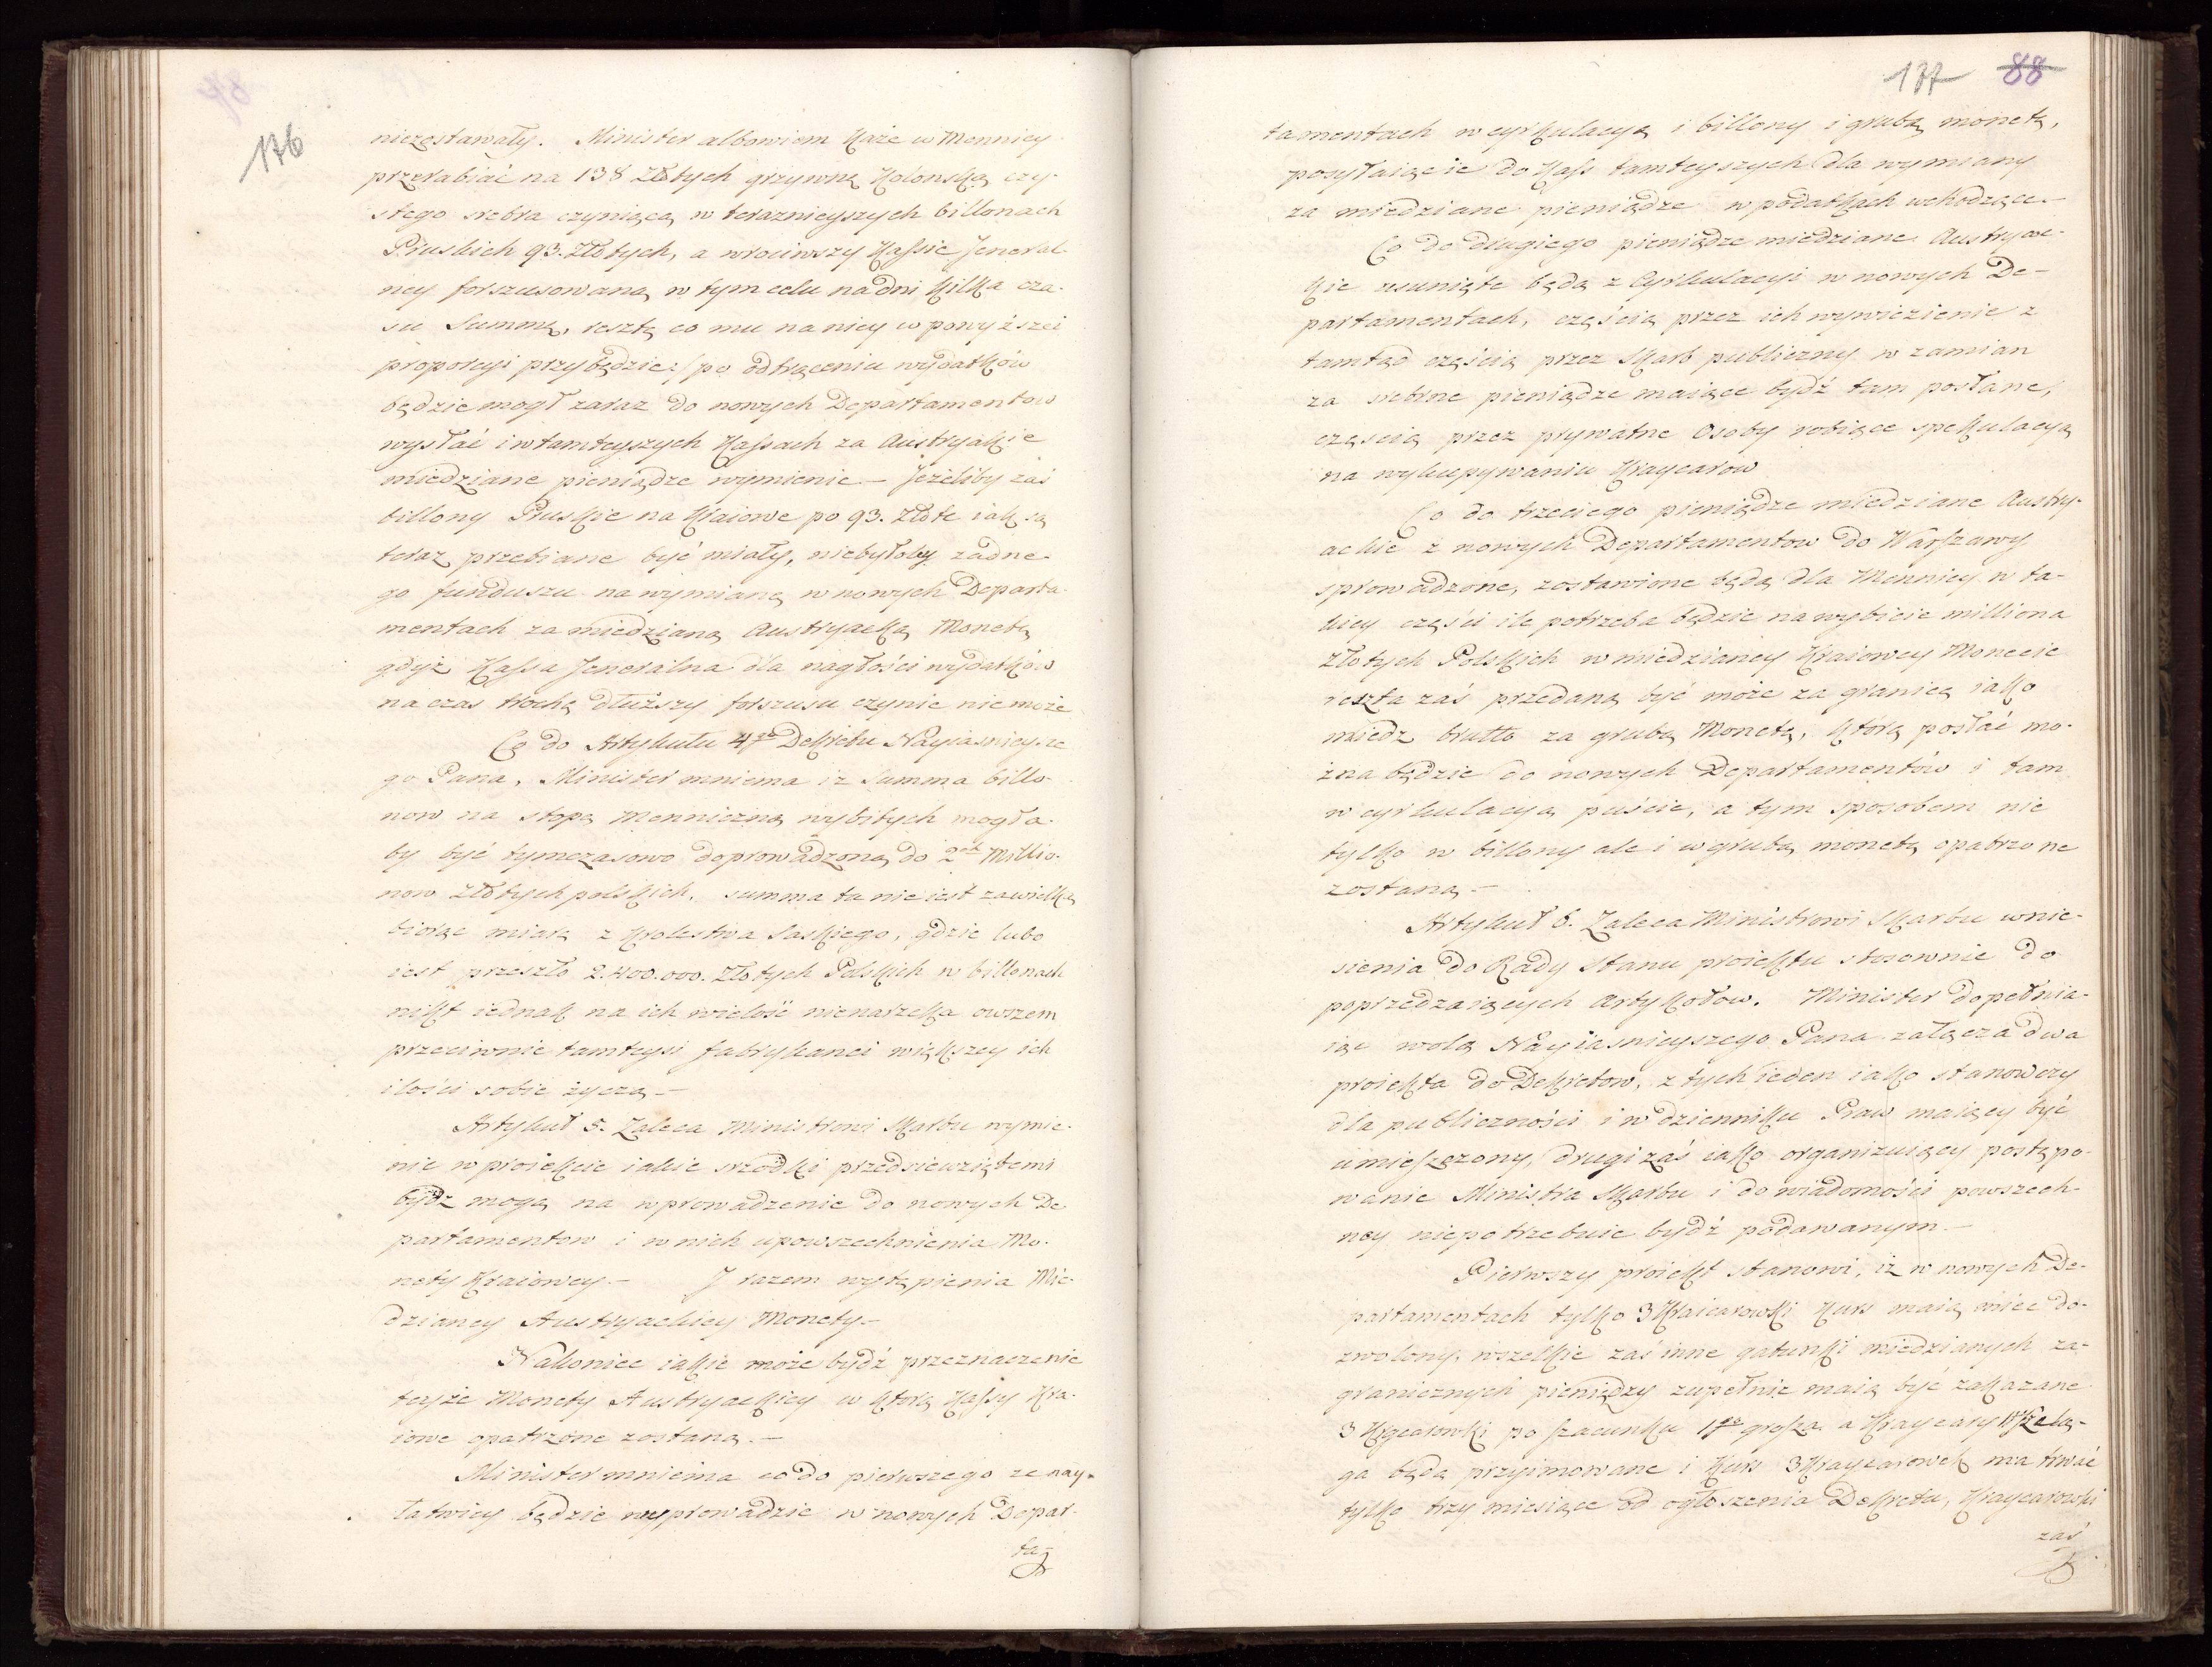 176
niezostawały. Minister albowiem każe w Mennicy
przerabiać na 138 Złotych grzywnę Kolonską czy-
stego srebra czyniącą w teraznieyszych billonach
Pruskich 93. Złotych, a wrociwszy Kassie Jeneral-
ney forszusowaną w tym celu na dni kilka cza-
su Summę, resztę co mu na niey w powyższei
proporcyi przybędzie :/ po odtrąceniu wydatków
będzie mogł zaraz do nowych Departamentow
wysłać i w tamteyszych Kassach za Austryakie
miedziane pieniądze wymienic – Jeżeliby zaś
billony Pruskie na kraiowe po 93. Złote iak są
teraz przebiane być miały, niebyłoby żadne-
go funduszu na wymianę w nowych Departa-
mentach za miedzianą Austryacką Monetę
gdyż Kassa Jeneralna dla nagłości wydatków
na czas trochę dłuższy forszusu czynic nie może
Co do Artykułu 4go Dekretu Nayiasnieysze
go Pana, Minister mniema iz Summa billo-
now na stopę Menniczną wybitych mogła-
by być tymczasowo doprowadzoną do 2ch Millio-
now złotych polskich, summa ta nie iest zawielką
biorąc miarę z Krolestwa Saskiego, gdzie lubo
iest przeszło 2.400.000. Złotych Polskich w billonach
nikt iednak na ich wielość nienarzeka owszem
przeciwnie tamteysi fabrykanci większey ich
ilości sobie życzą –
Artykuł 5. Zaleca Ministrowi Skarbu wymie-
nic w proiekcie iakie srzodki przedsiewziętemi
bydz mogą na wprowadzenie do nowych De
partamentow i w nich upowszechnienia Mo-
nety Kraiowey. – J razem wytępienia Mie-
dzianey Austryackiey Monety –
Nakoniec iakie może bydź przeznaczenie
teyże Monety Austryackiey w którą Kassy Kra-
iowe opatrzone zostaną. –
Minister mniema co do pierwszego ze nay-
łatwiey będzie wyprowadzic w nowych Depar-
ta
177 88
tamentach w cyrkulacyą i billony i grubą monetę,
posyłaiąc ie do Kass tamteyszych dla wymiany
za miedziane pieniądze w podatkach wchodzące –
Co do drugiego pieniądze miedziane Austryac-
kie usunięte będą z Cyrkulacyi w nowych De-
partamentach, częścią przez ich wywiezienie z
tamtąd częścią przez Skarb publiczny w zamian
za srebrne pieniądze maiące bydź tam posłane,
częscią przez prywatne Osoby robiące spekulacyą
na wykupywaniu Kraycarow
Co do trzeciego pieniądze miedziane Austry-
ackie z nowych Departamentow do Warszawy
sprowadzone, zostawione będą dla Mennicy w ta-
kiey części ile potrzeba będzie na wybicie milliona
złotych Polskich w miedzianey Kraiowey Monecie
reszta zaś przedaną być może za granicę iako
miedz brutto za grubą Monetę, którą posłać mo-
żna będzie do nowych Departamentów i tam
w cyrkulacyą puście, a tym sposobem nie
tylko w billony ale i w grubą monetę opatrzone
zostaną –
Artykuł 6. Zaleca Ministrowi Skarbu wnie-
sienia do Rady Stanu proiektu stosownie do
poprzedzaiących Artykołow. Minister dopełnia-
iąc wolą Nayiasnieyszego Pana załącza dwa
proiekta do Dekretow, z tych ieden iako stanowczy
dla publiczności i w dzienniku Praw maiący być
umieszczony, drugi zaś iako organizuiący postępo-
wanie Ministra Skarbu i do wiadomości powszech-
ney niepotrzebuie bydź podawanym –
Pierwszy proiekt stanowi, iż w nowych De-
partamentach tylko 3 Kraicarowki Kurs maią miec do-
zwolony, wszelkie zaś inne gatunki miedzianych za-
granicznych pieniędzy zupełnie maią być zakazane
3 po szacunku 1go grosza a Kraycary Szelą-
ga będą przyimowane i Kurs 3 Kraycarowek ma trwać
tylko trzy miesiące od ogłoszenia Dekretu, Kraycarowki
zaś